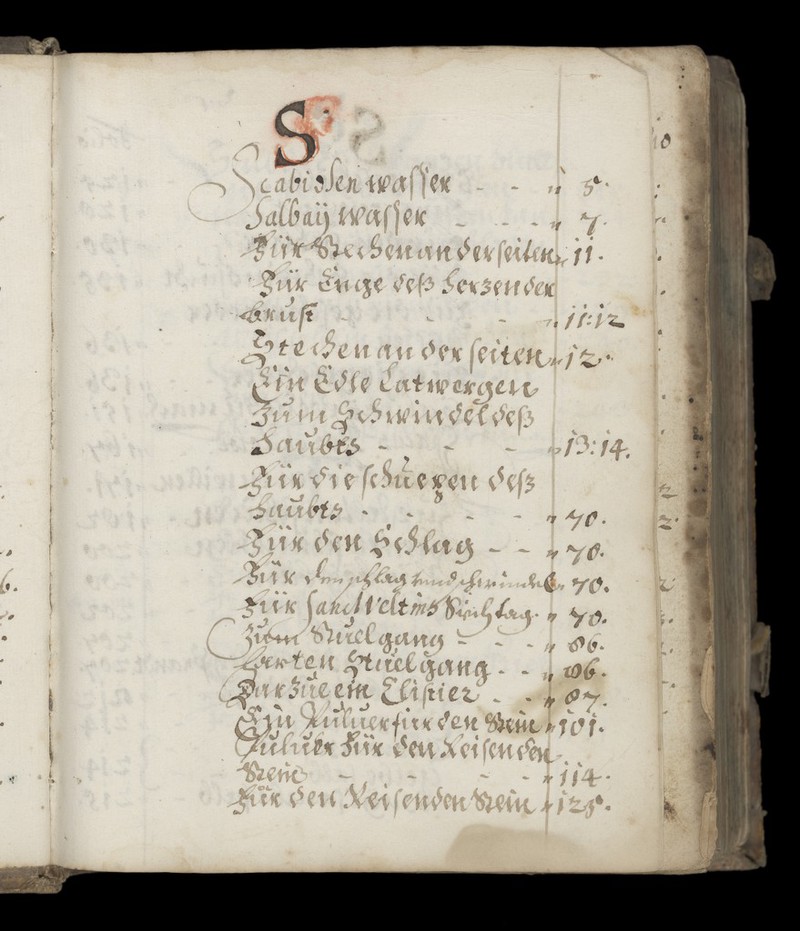 S
Scabiosen wasser - - " 8.
Salbaÿ wasser - - - " 7.
Für Stechen an der seiten " 11.
Für Enge deß herzen der
brust - - - " 11:12
Stechen an der seiten " 12.
Ein Edle Latwergen
zum Schwindel deß
haubts - - - " 13:14.
Für die schuepen deß
haubts - - - - " 70.
Für den Schlag - - " 70.
Für den schlag vnd schwindel " 70.
Für sanct veltins Siechtag " 70.
Zum Stuelgang - - - " 86.
harten Stuelgang - - " 86.
Darzue ein Clistier - - " 87.
Ein Puluer für den Stein " 101.
Puluer Für den Reisenden
Stein - - - - " 114.
Für den Reisenden Stein " 128.